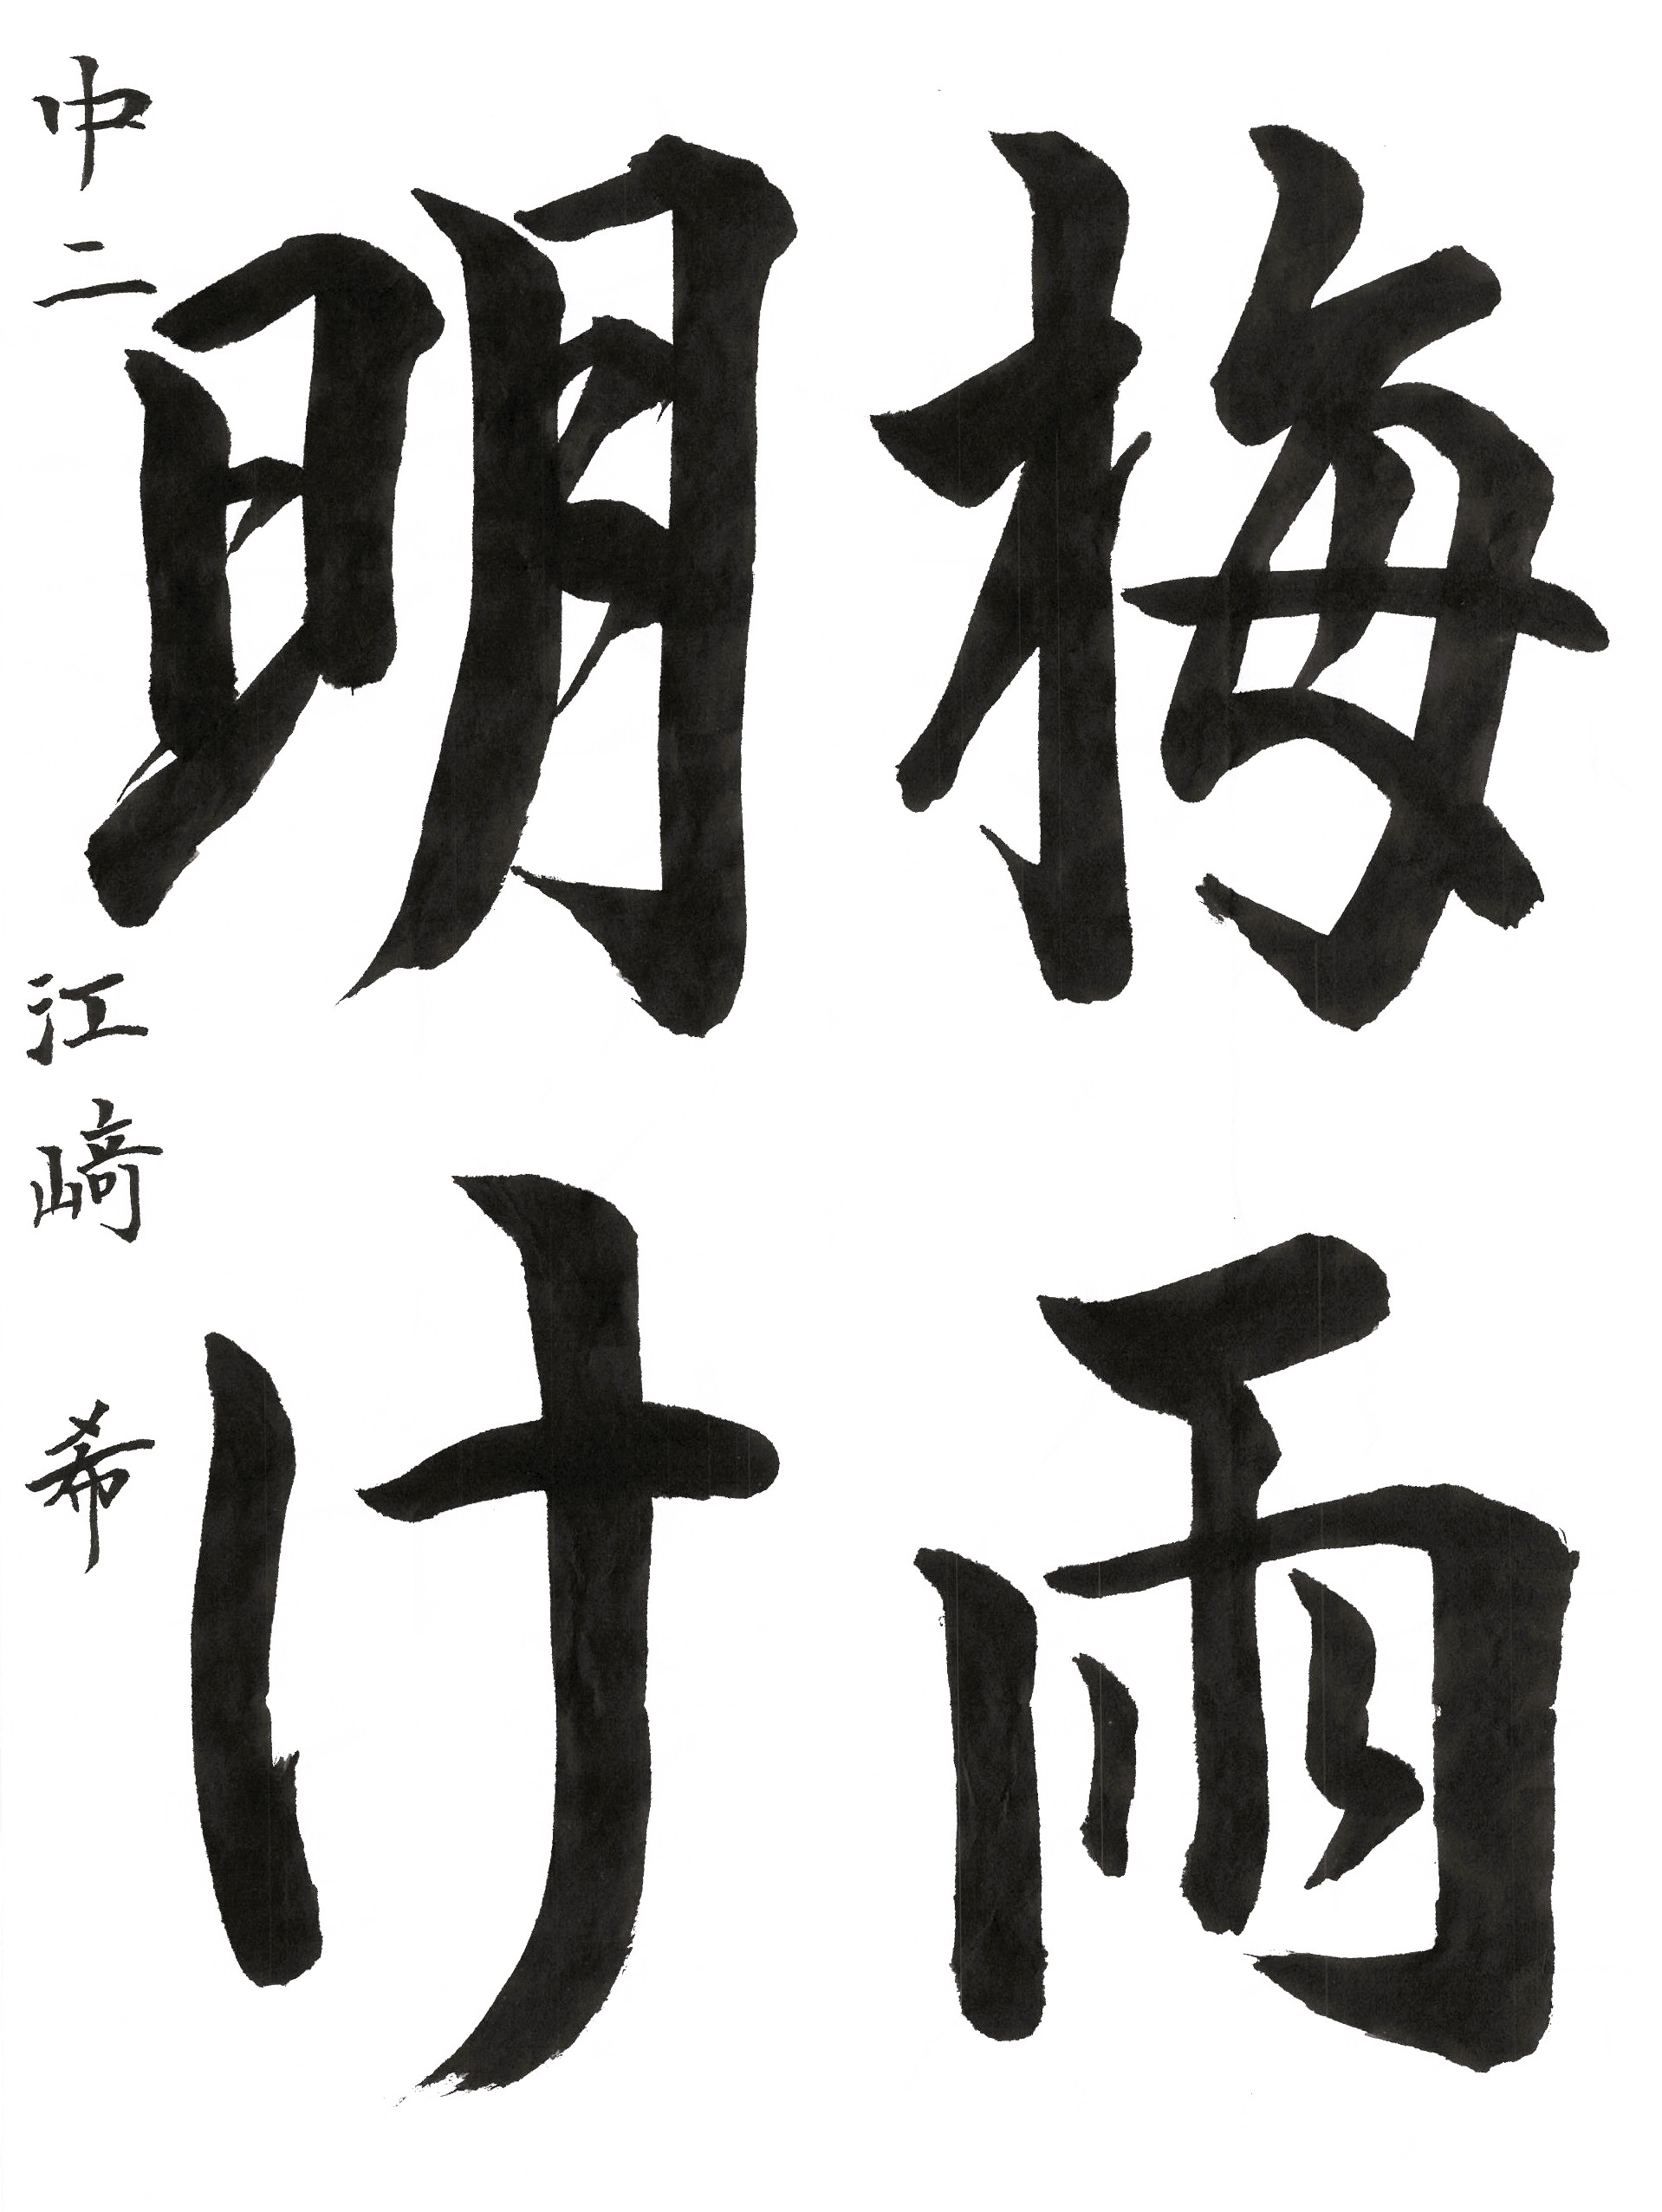 梅雨
明け
中二 江﨑 希